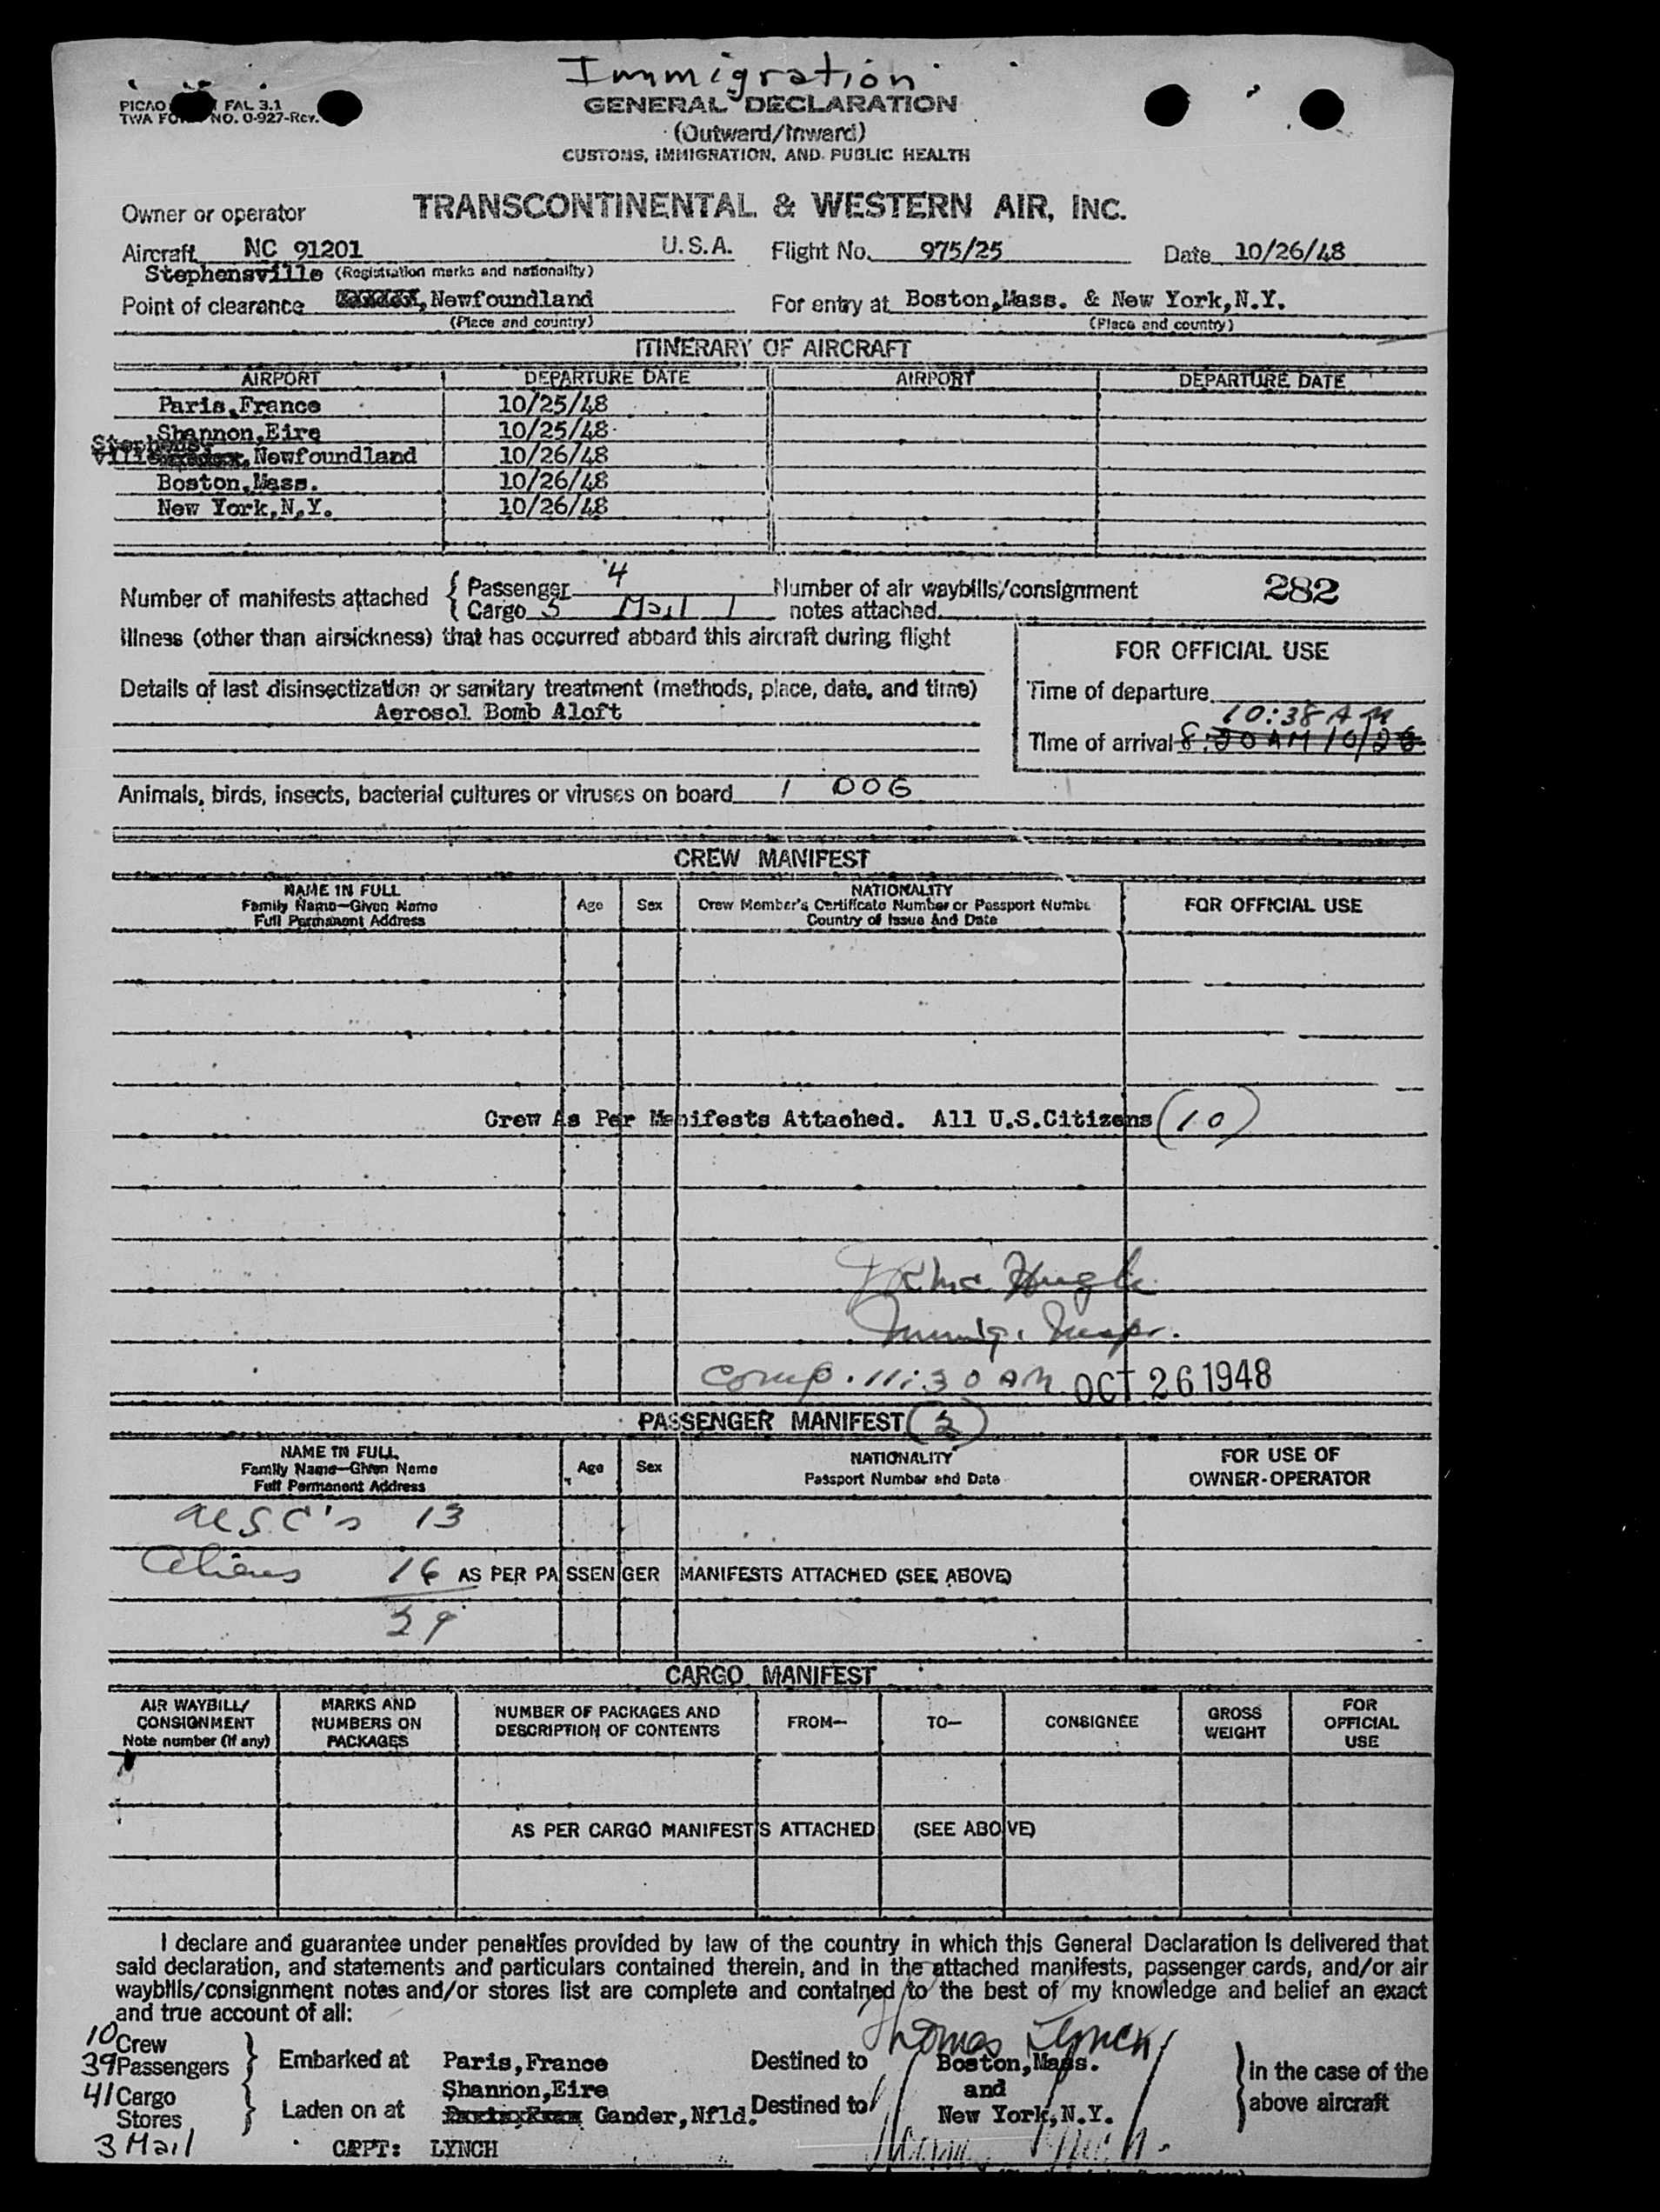 Immigration
PICAO FAL 3.1
TWA FORM NO. 0-927-Rev.
GENERAL DECLARATION
(Outward/Inward)
CUSTOMS, IMMIGRATION, AND PUBLIC HEALTH
Owner or operator TRANSCONTINENTAL & WESTERN AIR, INC.
Aircraft NC 91201 U.S.A. Flight No. 975/25 Date 10/26/48
Stephensville (Registration marks and nationality)
Point of clearance , Newfoundland For entry at Boston,Mass. & New York,N.Y.
(Place and country) (Place and country)
ITINERARY OF AIRCRAFT
AIRPORT DEPARTURE DATE AIRPORT DEPARTURE DATE
Paris,France 10/25/48
Shannon,Eire 10/25/48
Stephens
ville , Newfoundland 10/26/48
Boston,Mass. 10/26/48
New York,N.Y. 10/26/48
Number of manifests attached { Passenger 4 Number of air waybills/consignment 282
{ Cargo 5 Mail 1 notes attached
Illness (other than airsickness) that has occurred aboard this aircraft during flight
FOR OFFICIAL USE
Details of last disinsectization or sanitary treatment (methods, place, date, and time)
Time of departure
Aerosol Bomb Aloft
10:38 AM
Time of arrival 8:20 AM 10/26
Animals, birds, insects, bacterial cultures or viruses on board 1 DOG
CREW MANIFEST
NAME IN FULL
Family Name—Given Name
Full Permanent Address
Age Sex
NATIONALITY
Crew Member's Certificate Number or Passport Numbe
Country of Issue And Date
FOR OFFICIAL USE
Crew As Per Manifests Attached. All U.S.Citizens (10)
Immig. Inspr.
Comp. 11:30 AM OCT 26 1948
PASSENGER MANIFEST
NAME IN FULL
Family Name—Given Name
Full Permanent Address
Age Sex
NATIONALITY
Passport Number and Date
FOR USE OF
OWNER-OPERATOR
USC's 13
Aliens 16 AS PER PASSENGER MANIFESTS ATTACHED (SEE ABOVE)
CARGO MANIFEST
AIR WAYBILL/
CONSIGNMENT
Note number (if any)
MARKS AND
NUMBERS ON
PACKAGES
NUMBER OF PACKAGES AND
DESCRIPTION OF CONTENTS
FROM— TO— CONSIGNEE
GROSS
WEIGHT
FOR
OFFICIAL
USE
AS PER CARGO MANIFESTS ATTACHED (SEE ABOVE)
I declare and guarantee under penalties provided by law of the country in which this General Declaration is delivered that
said declaration, and statements and particulars contained therein, and in the attached manifests, passenger cards, and/or air
waybills/consignment notes and/or stores list are complete and contained to the best of my knowledge and belief an exact
and true account of all:
Thomas Lynch
10 Crew
39 Passengers } Embarked at Paris,France Destined to Boston,Mass. } in the case of the
Shannon,Eire and
41 Cargo
Stores } Laden on at Gander,Nfld. Destined to New York,N.Y. } above aircraft
3 Mail
CAPT: LYNCH Thomas Lynch